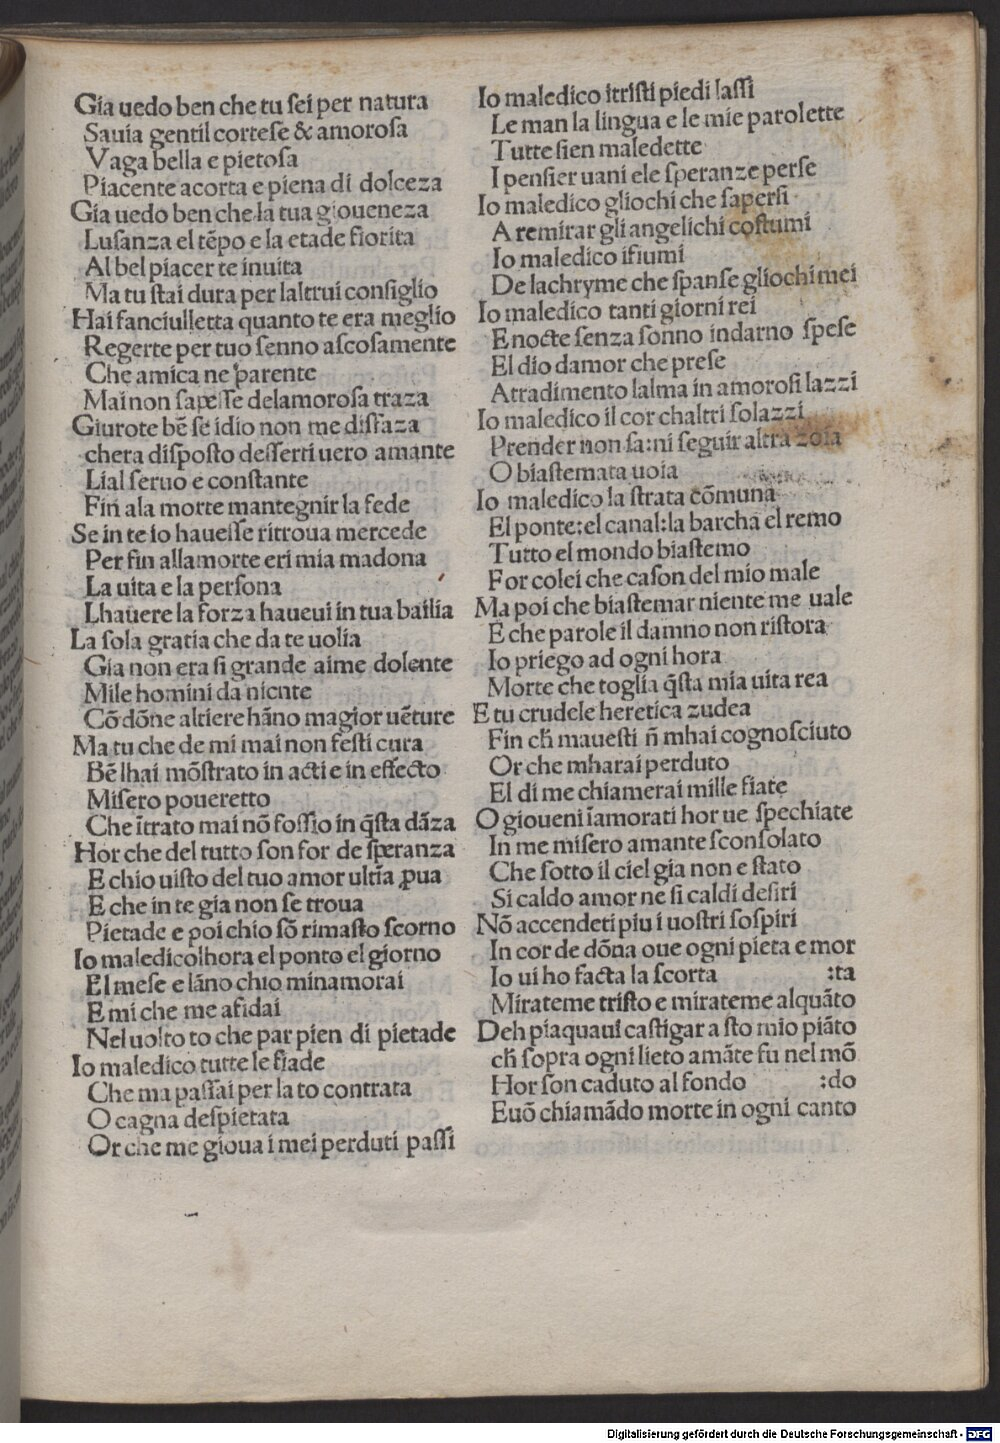 Gia uedo ben che tu sei per natura
Sauia gentil cortese & amorosa
Vaga bella e pietosa
Piacente acorta e piena di dolceza
Gia uedo ben che la tua gioueneza
Lusanza el tēpo e la etade fiorita
Al bel piacer te inuita
Ma tu stai dura per laltrui consiglio
Hai fanciulletta quanto te era meglio
Regerte per tuo senno ascosamente
Che amica ne parente
Mai non sapesse delamorosa traza
Giurote bē se idio non me disfaza
chera disposto desserti uero amante
Lial seruo e constante
Fin ala morte mantegnir la fede
Se in te io hauesse ritroua mercede
Per fin allamorte eri mia madona
La uita e la persona
Lhauere la forza haueui in tua bailia
La sola gratia che da te uolia
Gia non era si grande aime dolente
Mile homini da niente
Cō dōne altiere hāno magior uēture
Ma tu che de mi mai non festi cura
Bē lhai mōstrato in acti e in effecto
Misero poueretto
Che ītrato mai nō fossio in q̄sta dāza
Hor che del tutto son for de speranza
E chio uisto del tuo amor ultīa ꝓua
E che in te gia non se troua
Pietade e poi chio sō rimasto scorno
Io maledicolhora el ponto el giorno
El mese e lāno chio minamorai
E mi che me afidai
Nel uolto to che par pien di pietade
Io maledico tutte le fiade
Che ma passai per la to contrata
O cagna despietata
Or che me gioua i mei perduti passi
Io maledico itristi piedi lassi
Le man la lingua e le mie parolette
Tutte sien maledette
I pensier uani ele speranze perse
Io maledico gliochi che sapersi
A remirar gli angelichi costumi
Io maledico ifiumi
De lachryme che spanse gliochi mei
Io maledico tanti giorni rei
E nocte senza sonno indarno spese
El dio damor che prese
Atradimento lalma in amorosi lazzi
Io maledico il cor chaltri solazzi
Prender non sa:ni seguir altra zoia
O biastemata uoia
Io maledico la strata cōmuna
El ponte:el canal:la barcha el remo
Tutto el mondo biastemo
For colei che cason del mio male
Ma poi che biastemar niente me uale
E che parole il damno non ristora
Io priego ad ogni hora
Morte che toglia q̄sta mia uita rea
E tu crudele heretica zudea
Fin ch̄ mauesti n̄ mhai cognosciuto
Or che mharai perduto
El di me chiamerai mille fiate
O gioueni īamorati hor ue spechiate
In me misero amante sconsolato
Che sotto il ciel gia non e stato
Si caldo amor ne si caldi desiri
Nō accendeti piu i uostri sospiri
In cor de dōna oue ogni pieta e mor
Io ui ho facta la scorta :ta
Mirateme tristo e mirateme alquāto
Deh piaquaui castigar a sto mio piāto
ch̄ sopra ogni lieto amāte fu nel mō
Hor son caduto al fondo :do
Euō chiamādo morte in ogni canto
Digitalisierung gefördert durch die Deutsche Forschungsgemeinschaft - DFG